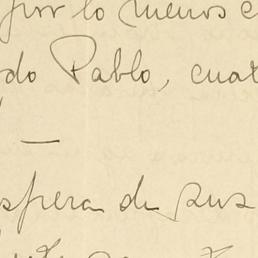 por lo menos
do Pablo, cua
—
spera de sus